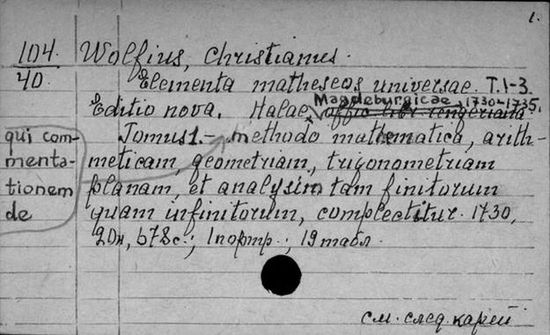 1.
104. Wolfius, Christianus.
40
Elementa matheseos universae. T.1-3.
Editio nova. Halae Magdeburgicae, 1730-1735.
Tomus 1.- methodo mathematica, arith-
qui com-
menta-
tionem
de
meticam, geometriam, trigonometriam
planam, et analysim tam finitorum
quam infinitorum, complectitur. 1730,
20н, 678с.; 1 портр.; 19 табл.
см. след. карт